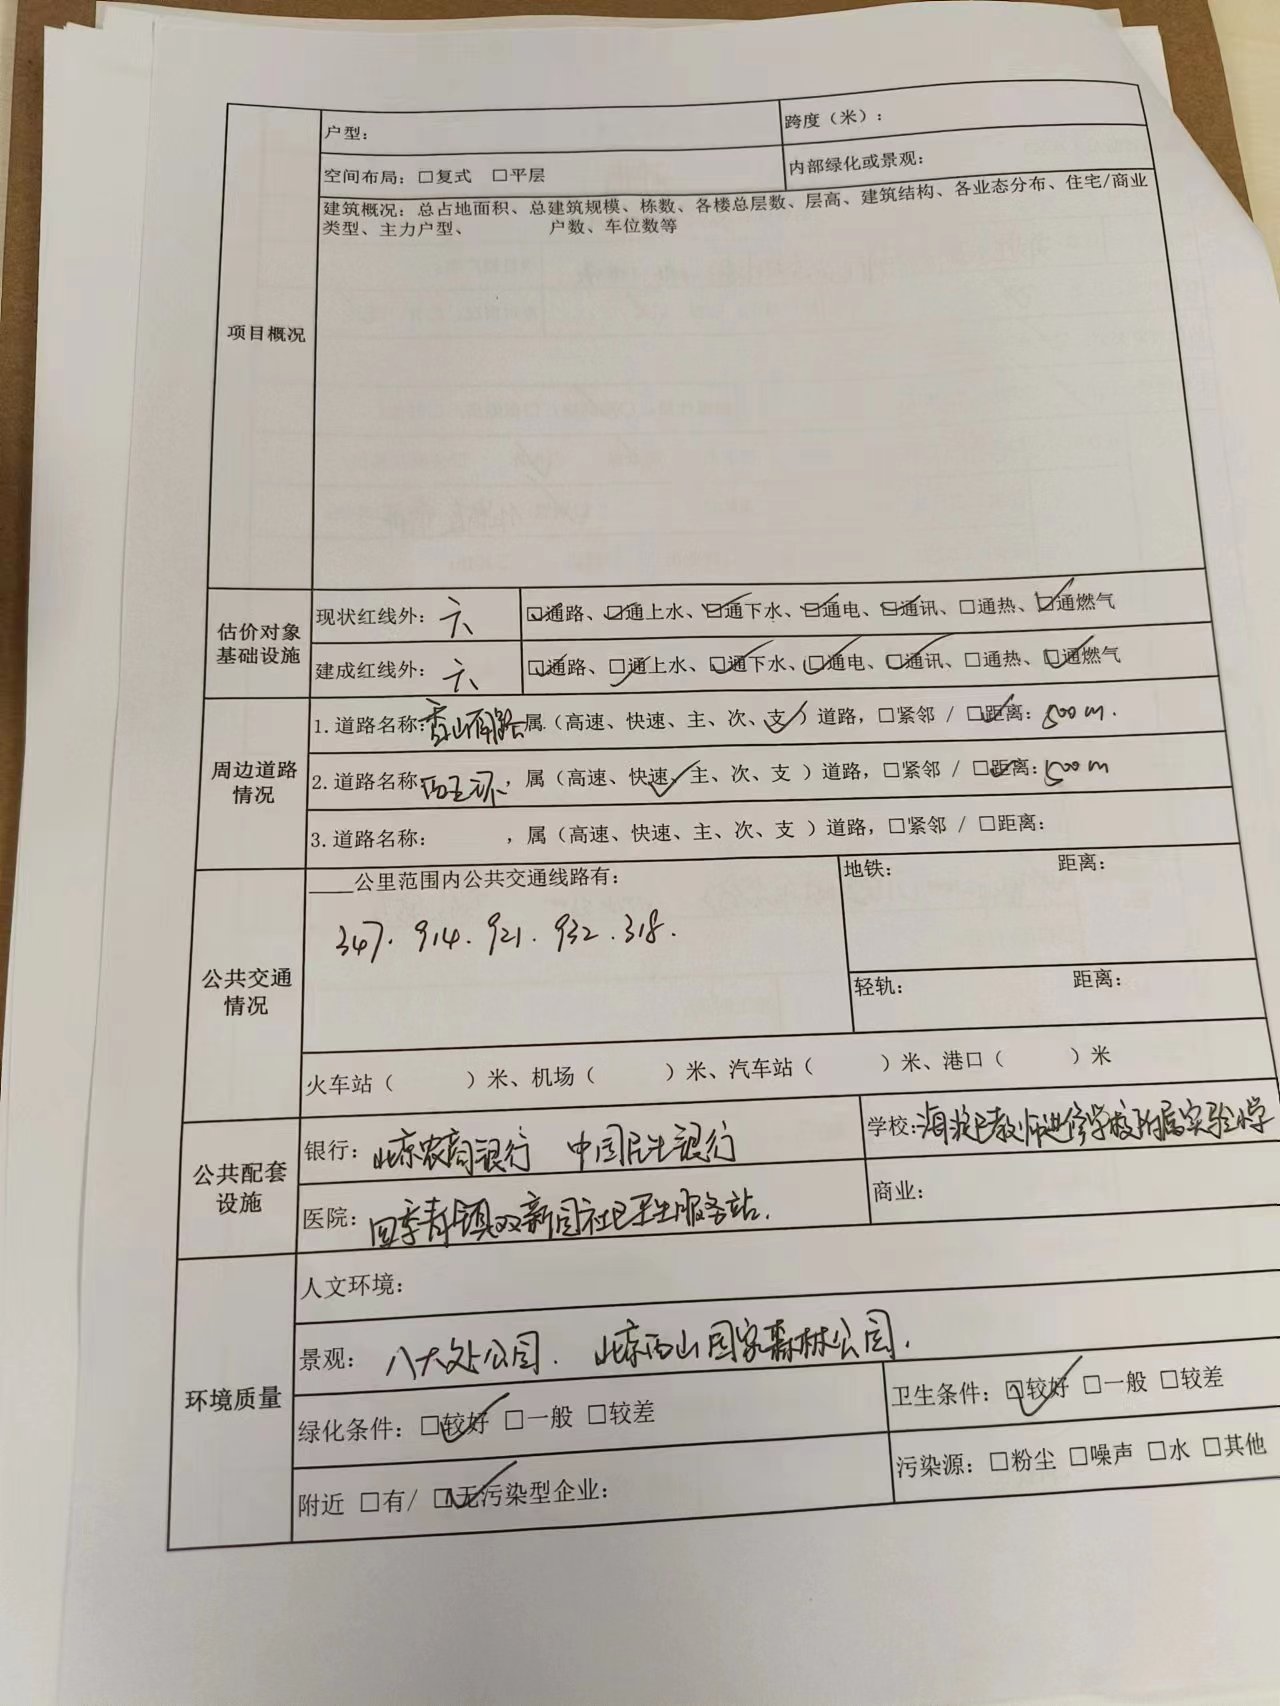 户型： 跨度（米）：
空间布局：□复式 □平层 内部绿化或景观：
项目概况
建筑概况：总占地面积、总建筑规模、栋数、各楼总层数、层高、建筑结构、各业态分布、住宅/商业
类型、主力户型、 户数、车位数等
估价对象
基础设施
现状红线外：六 ☑通路、☑通上水、☑通下水、☑通电、☑通讯、□通热、☑通燃气
建成红线外：六 ☑通路、☑通上水、☑通下水、☑通电、☑通讯、□通热、☑通燃气
周边道路
情况
1.道路名称：香山南路属（高速、快速、主、次、支✓）道路，□紧邻 / ☑距离：500m.
2.道路名称西五环，属（高速、快速✓、主、次、支 ）道路，□紧邻 / ☑距离：500m
3.道路名称： ，属（高速、快速、主、次、支 ）道路，□紧邻 / □距离：
公共交通
情况
____公里范围内公共交通线路有：
347. 914. 921. 932. 318.
地铁： 距离：
轻轨： 距离：
火车站（ ）米、机场（ ）米、汽车站（ ）米、港口（ ）米
公共配套
设施
银行：北京农商银行 中国民生银行
学校：海淀区教师进修学校附属实验小学
医院：四季青镇双新园社区卫生服务站.
商业：
环境质量
人文环境：
景观：八大处公园. 北京西山国家森林公园.
绿化条件：☑较好 □一般 □较差 卫生条件：☑较好 □一般 □较差
附近 □有/ ☑无污染型企业： 污染源：□粉尘 □噪声 □水 □其他